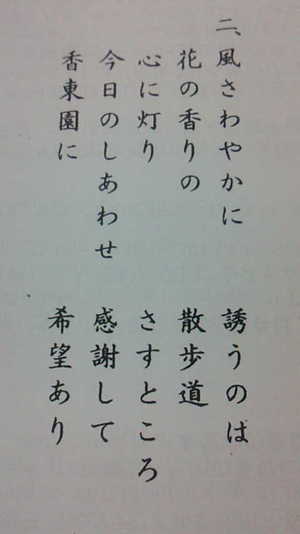 二、風さわやかに　誘うのは
花の香りの　散歩道
心に灯り　さすところ
今日のしあわせ　感謝して
香東園に　希望あり